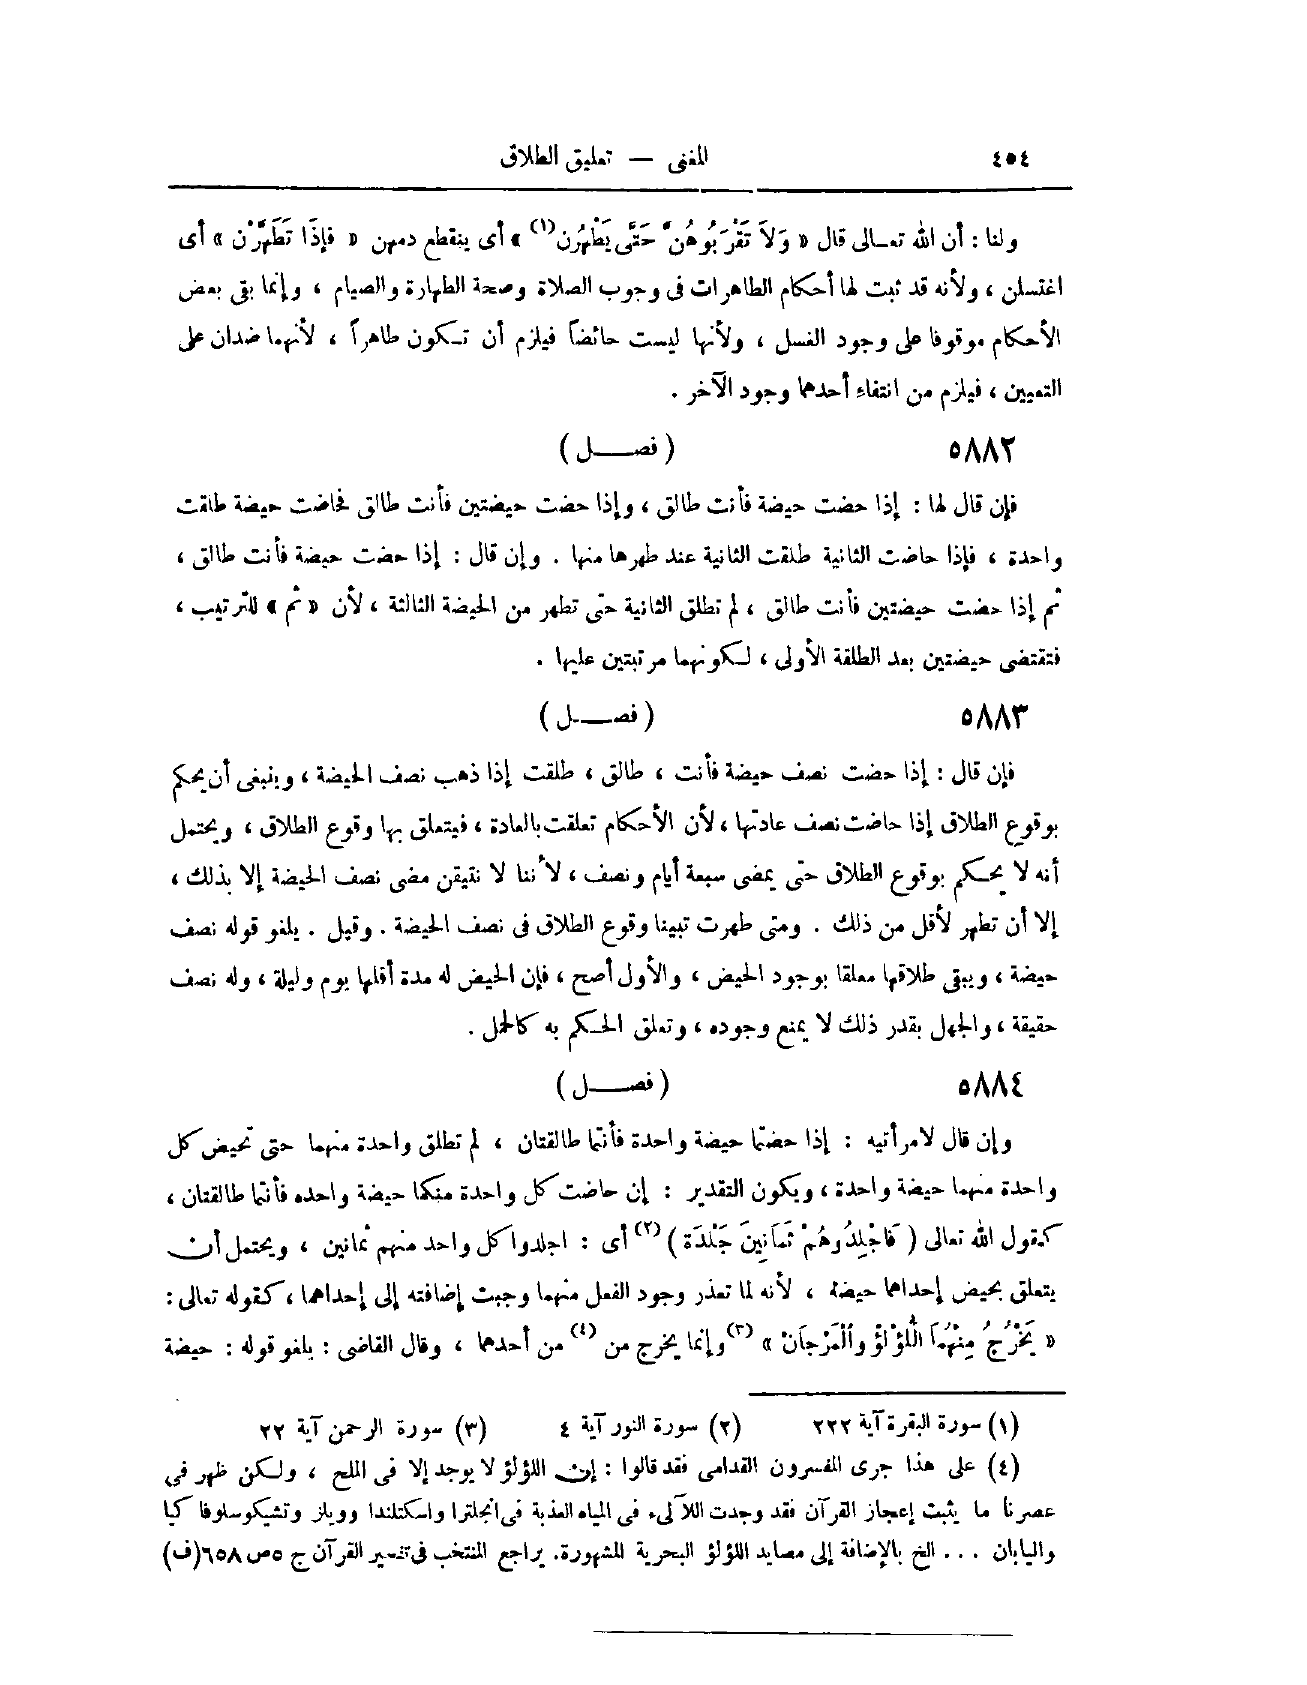 ٤٥٤
المغنى — تعليق الطلاق
ولنا : أن الله تعالى قال « وَلاَ تَقْرَبُوهُنَّ حَتَّى يَطْهُرْن(١) » أى ينقطع دمهن « فإذَا تَطَهَّرْن » أى
اغتسلن ، ولأنه قد ثبت لها أحكام الطاهرات فى وجوب الصلاة وصحة الطهارة والصيام ، وإنما بقى بعض
الأحكام موقوفا على وجود الغسل ، ولأنها ليست حائضاً فيلزم أن تكون طاهراً ، لأنهما ضدان على
التعيين ، فيلزم من انتفاء أحدهما وجود الآخر .
٥٨٨٢ ( فصل )
فإن قال لها : إذا حضت حيضة فأنت طالق ، وإذا حضت حيضتين فأنت طالق فحاضت حيضة طلقت
واحدة ، فإذا حاضت الثانية طلقت الثانية عند طهرها منها . وإن قال : إذا حضت حيضة فأنت طالق ،
ثم إذا حضت حيضتين فأنت طالق ، لم تطلق الثانية حتى تطهر من الحيضة الثالثة ، لأن « ثم » للترتيب ،
فتقتضى حيضتين بعد الطلقة الأولى ، لكونهما مرتبتين عليها .
٥٨٨٣ ( فصل )
فإن قال : إذا حضت نصف حيضة فأنت ، طالق ، طلقت إذا ذهب نصف الحيضة ، وينبغى أن يحكم
بوقوع الطلاق إذا حاضت نصف عادتها ، لأن الأحكام تعلقت بالعادة ، فيتعلق بها وقوع الطلاق ، ويحتمل
أنه لا يحكم بوقوع الطلاق حتى يمضى سبعة أيام ونصف ، لأننا لا نتيقن مضى نصف الحيضة إلا بذلك ،
إلا أن تطهر لأقل من ذلك . ومتى طهرت تبينا وقوع الطلاق فى نصف الحيضة . وقيل . يلغو قوله نصف
حيضة ، ويبقى طلاقها معلقا بوجود الحيض ، والأول أصح ، فإن الحيض له مدة أقلها يوم وليلة ، وله نصف
حقيقة ، والجهل بقدر ذلك لا يمنع وجوده ، وتعلق الحكم به كالحمل .
٥٨٨٤ ( فصل )
وإن قال لامرأتيه : إذا حضتما حيضة واحدة فأنتما طالقتان ، لم تطلق واحدة منهما حتى تحيض كل
واحدة منهما حيضة واحدة ، ويكون التقدير : إن حاضت كل واحدة منكما حيضة واحده فأنتما طالقتان ،
كقول الله تعالى ( فَاجْلِدُوهُمْ ثَمَانِينَ جَلْدَة )(٢) أى : اجلدوا كل واحد منهم ثمانين ، ويحتمل أن
يتعلق بحيض إحداهما حيضة ، لأنه لما تعذر وجود الفعل منهما وجبت إضافته إلى إحداهما ، كقوله تعالى :
« يَخْرُجُ مِنْهُمَا اللُّؤْلؤُ والْمَرْجَانْ » (٣) وإنما يخرج من (٤) من أحدهما ، وقال القاضى : يلغو قوله : حيضة
(١) سورة البقرة آية ٢٢٢ (٢) سورة النور آية ٤ (٣) سورة الرحمن آية ٢٢
(٤) على هذا جرى المفسرون القدامى فقد قالوا : إن اللؤلؤ لا يوجد إلا فى الملح ، ولكن ظهر فى
عصرنا ما يثبت إعجاز القرآن فقد وجدت اللآلىء فى المياه العذبة فى انجلترا واسكتلندا وويلز وتشيكوسلوفا كيا
واليابان ... الخ بالإضافة إلى مصايد اللؤلؤ البحرية المشهورة. يراجع المنتخب فى تفسير القرآن ج ٥ص ٦٥٨(ف)